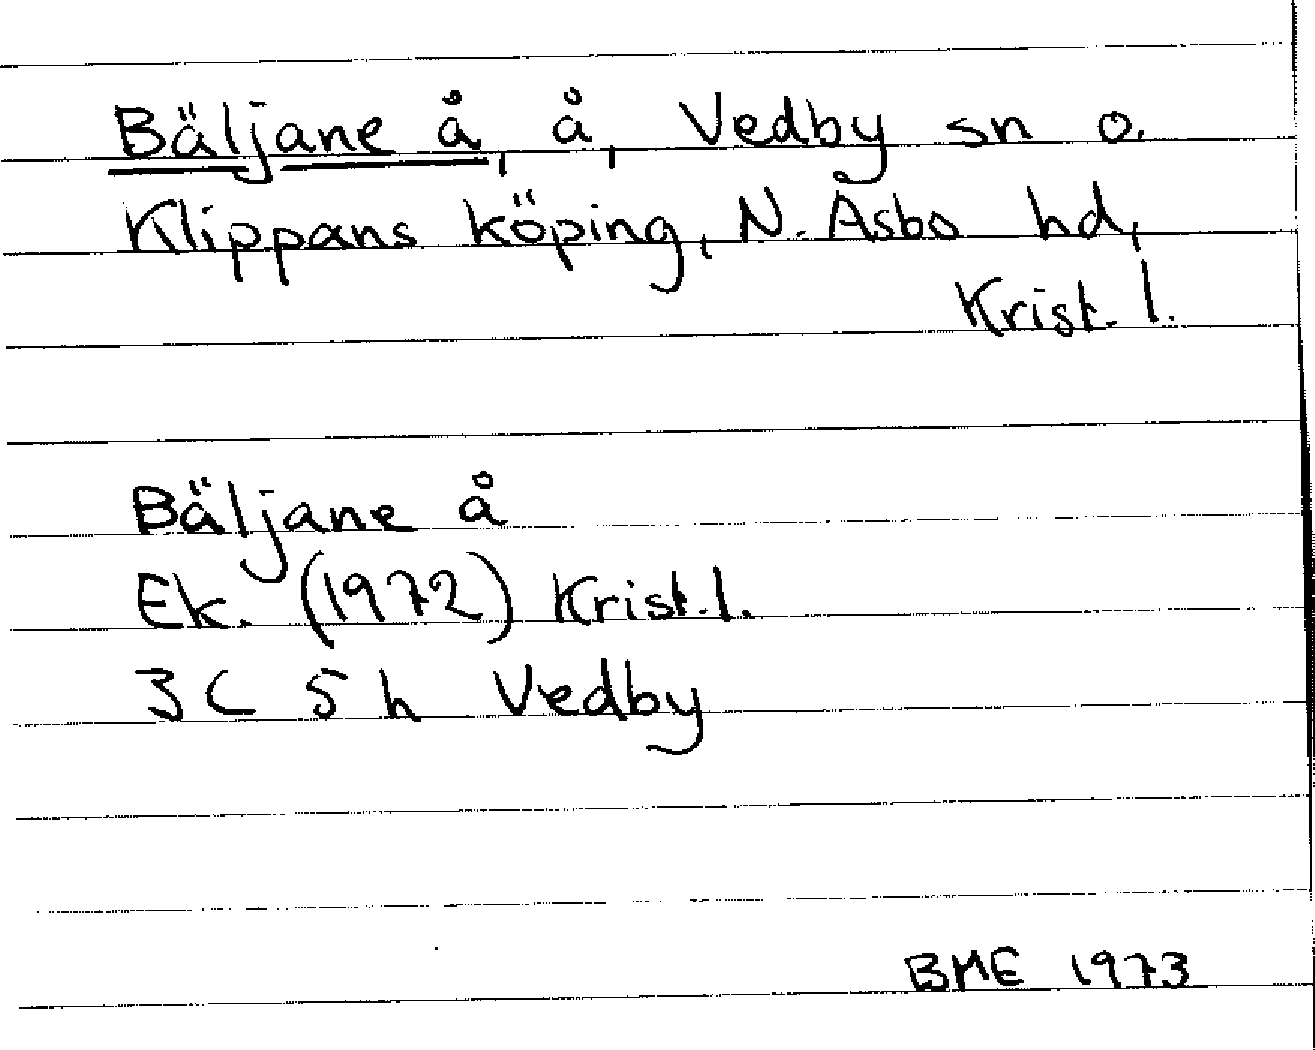 Bäljane å, å, Vedby sn o.
Klippans köping, N. Åsbo hd,
Krist. l.
Bäljane å
Ek. (1972) Krist. l.
3C 5h Vedby
BME 1973